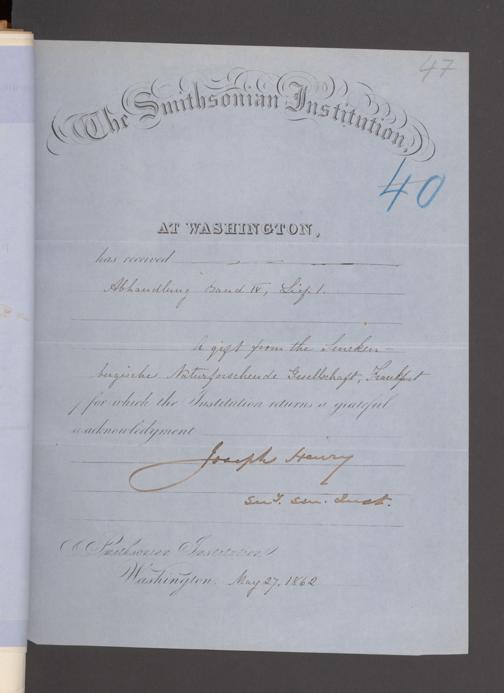 47
The Smithsonian Institution,
40
AT WASHINGTON,
has received
Abhandlung Band IV, Lief 1.
A gift from the Sencken-
bergische Naturforschende Gesellschaft, Frankfurt
for which the Institution returns a grateful
acknowledgment
Joseph Henry
Smithsonian Institution
Washington, May 27, 1862